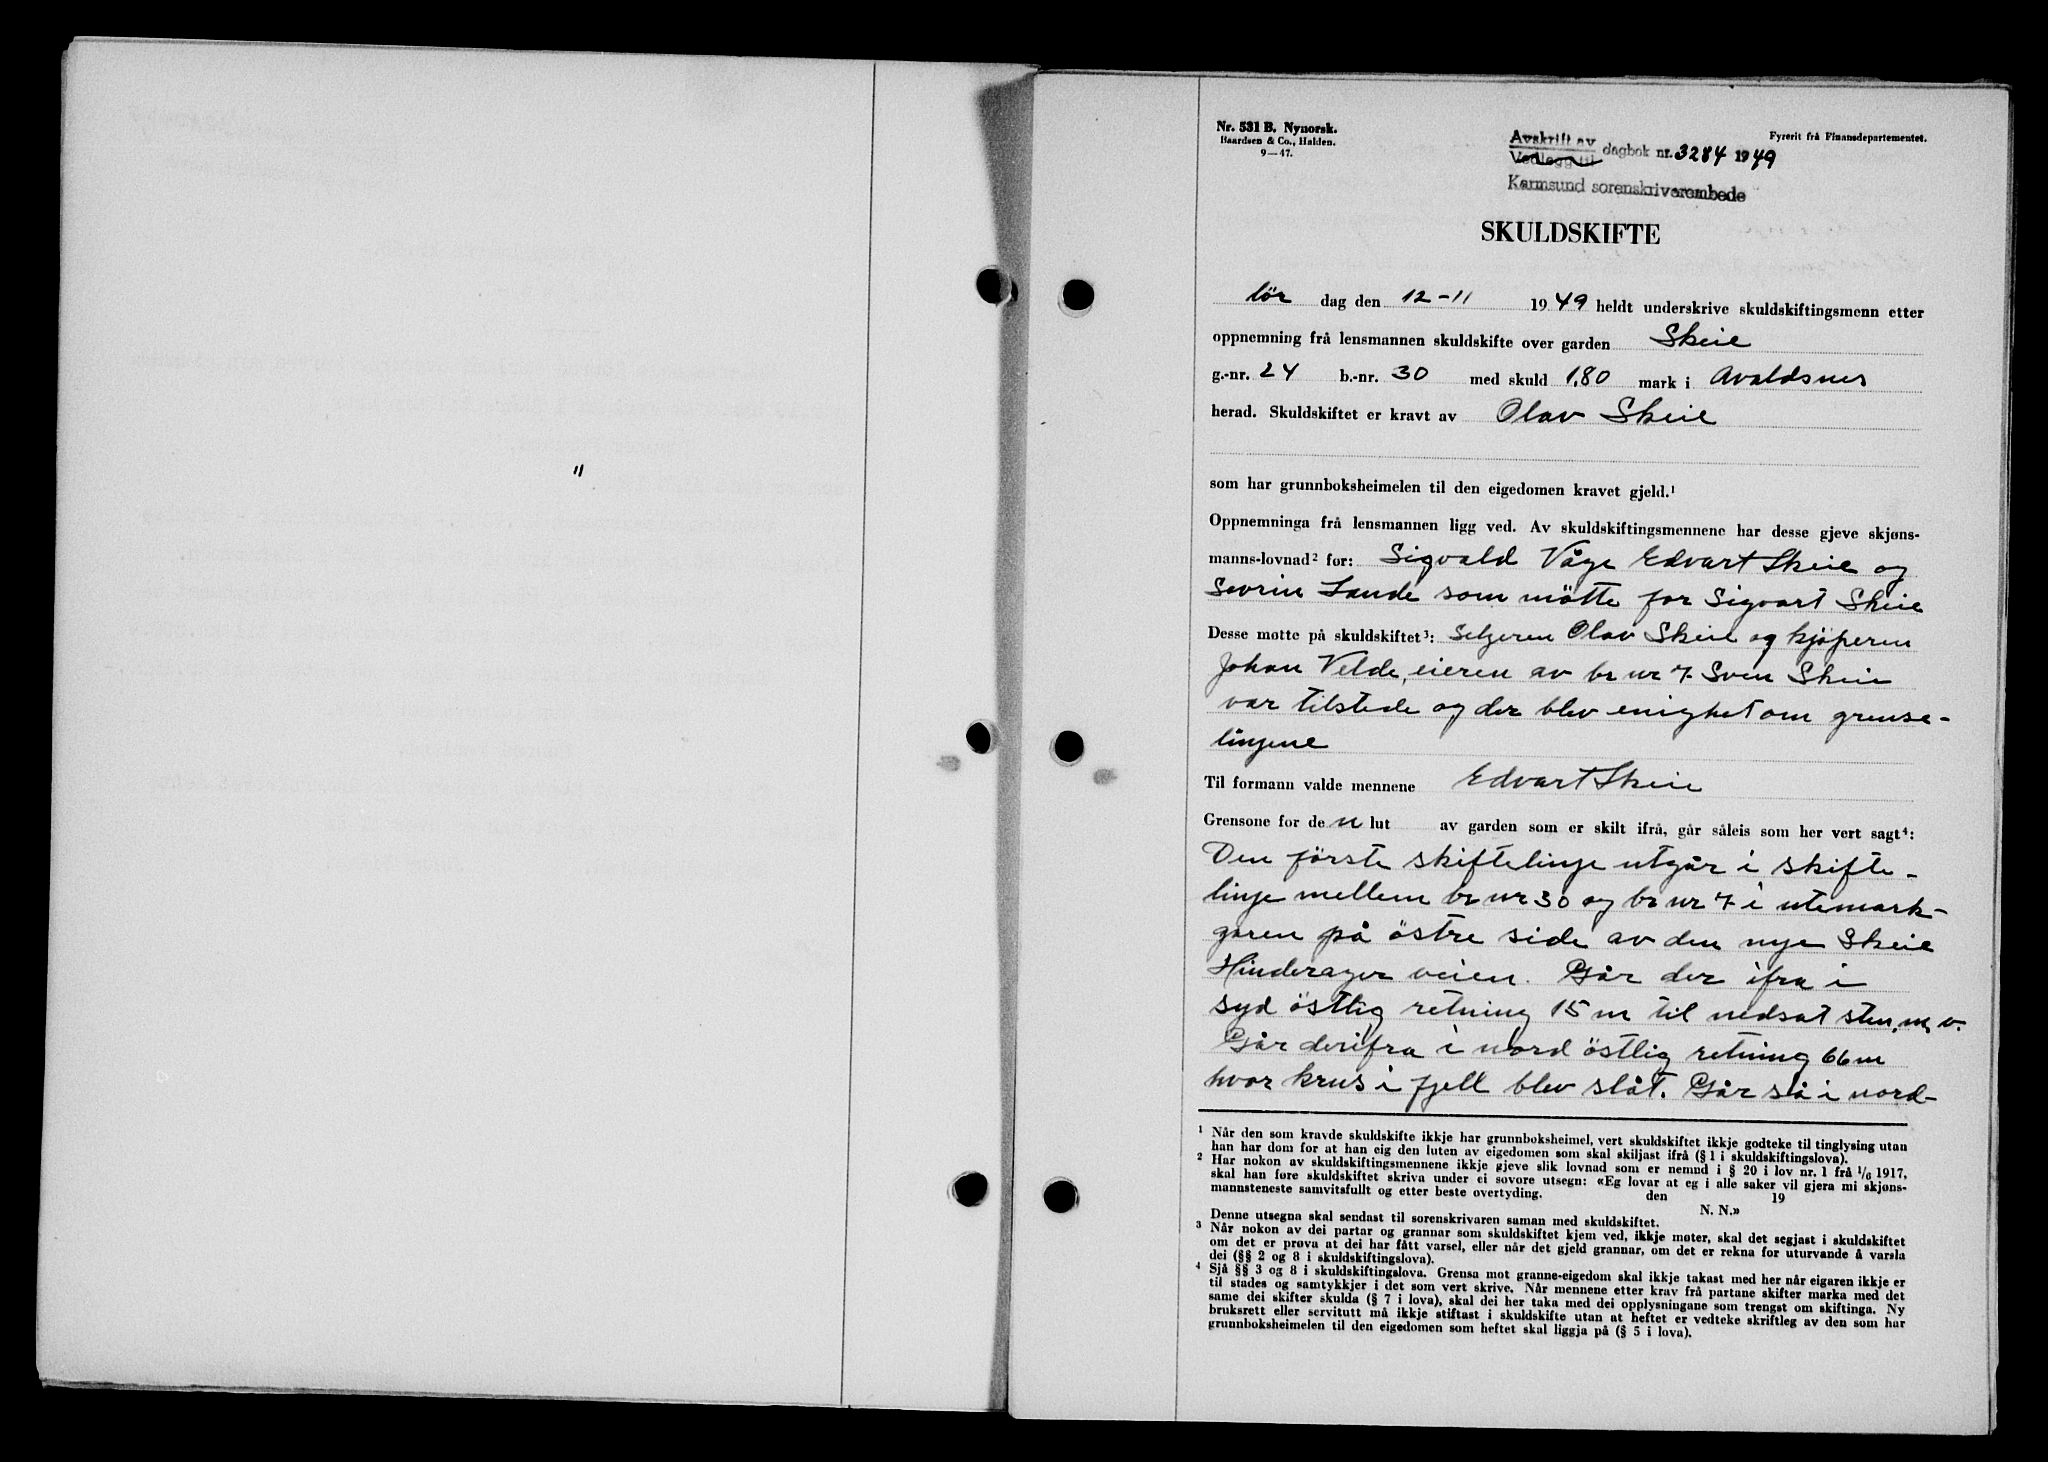 "
Nr. 531 B. Nynorsk.
Baardsen & Co., Halden.
9—47.
Fyrerit frå Finansdepartementet.
Avskrift av
Vedlegg til
dagbok nr. 3284 1949
Karmsund sorenskriverembede
SKULDSKIFTE
lör dag den 12-11 1949 heldt underskrive skuldskiftingsmenn etter
oppnemning frå lensmannen skuldskifte over garden Skeie
g.-nr. 24 b.-nr. 30 med skuld 1,80 mark i Avaldsnes
herad. Skuldskiftet er kravt av Olav Skeie
som har grunnboksheimelen til den eigedomen kravet gjeld.¹
Oppnemninga frå lensmannen ligg ved. Av skuldskiftingsmennene har desse gjeve skjøns-
manns-lovnad² før: Sigvald Våge Edvart Skeie og
Sevrin Lande som mötte for Sigvart Skeie
Desse møtte på skuldskiftet³: Selgeren Olav Skeie og kjöperen
Johan Velde, eieren av br nr 7 Sven Skeie
var tilstede og der blev enighet om grense-
linjene
Til formann valde mennene Edvart Skeie
Grensone for den lut av garden som er skilt ifrå, går såleis som her vert sagt⁴:
Den förste skiftelinje utgår i skifte-
linje mellem br nr 30 og br nr 7 i utemark-
garen på östre side av den nye Skeie
Hinderager veien. Går der ifra i
syd östlig retning 15 m til nedsat sten m. v.
Går derifra i nord östlig retning 66 m
hvor krus i fjell blev slåt. Går så i nord-
¹ Når den som kravde skuldskifte ikkje har grunnboksheimel, vert skuldskiftet ikkje godteke til tinglysing utan
han har dom for at han eig den luten av eigedomen som skal skiljast ifrå (§ 1 i skuldskiftingslova).
² Har nokon av skuldskiftingsmennene ikkje gjeve slik lovnad som er nemnd i § 20 i lov nr. 1 frå 1/6 1917,
skal han føre skuldskiftet skriva under ei sovore utsegn: «Eg lovar at eg i alle saker vil gjera mi skjøns-
mannsteneste samvitsfullt og etter beste overtyding. den 19
N. N.»
Denne utsegna skal sendast til sorenskrivaren saman med skuldskiftet.
³ Når nokon av dei partar og grannar som skuldskiftet kjem ved, ikkje møter, skal det segjast i skuldskiftet
om det er prøva at dei har fått varsel, eller når det gjeld grannar, om det er rekna for uturvande å varsla
dei (§§ 2 og 8 i skuldskiftingslova).
⁴ Sjå §§ 3 og 8 i skuldskiftingslova. Grensa mot granne-eigedom skal ikkje takast med her når eigaren ikkje er
til stades og samtykkjer i det som vert skrive. Når mennene etter krav frå partane skifter marka med det
same dei skifter skulda (§ 7 i lova), skal dei her taka med dei opplysningane som trengst om skiftinga. Ny
bruksrett eller servitutt må ikkje stiftast i skuldskifte utan at heftet er vedteke skriftleg av den som har
grunnboksheimelen til den eigedomen som heftet skal liggja på (§ 5 i lova).